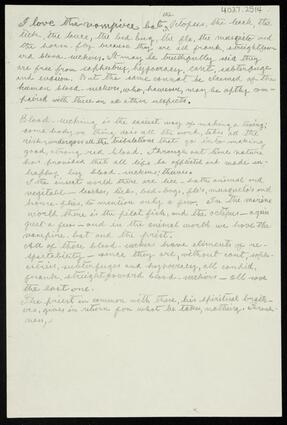 4027.2514
the
I love the vampire bat, Pilopes, the leech, the
tick, the louse, the bed bug, the flea, the mosquito and
the horse-fly because they are all frank, straightforw
ard blood-suckers. It may be truthfully said they
are free from sophistry, hypocracy, cant, subterfuge
and evasion. But the same cannot be claimed of the
human blood-suckers, who, however, may be aptly com
pared with these in all other respects.
Blood-sucking is the easiest way of making a living;
some body or thing does all the work, takes all the
risk, undergoes all the tribulations that go into making
good, strong, red blood. Through out time nature
has provided that all life be afflicted and made un-
happy by blood suckers; thieves.
In the insect world there are lice - both animal and
vegetable - leeches, ticks, bed-bugs, fle's, mosquito's and
horse-flies, to mention only a few. In the marine
world there is the pilot fish, and the octopus - again
just a few - and in the animal world we have the
vampire bat and the priest.
All of these blood-suckers have elements of re-
spectability - since they are, without cant, soph-
istries, subterfuges and hypocracy, all candid,
frank, straightforward blood-suckers - all save
the last one.
The priest in common with these, his spiritual broth-
ers, gives in return for what he takes, nothing.